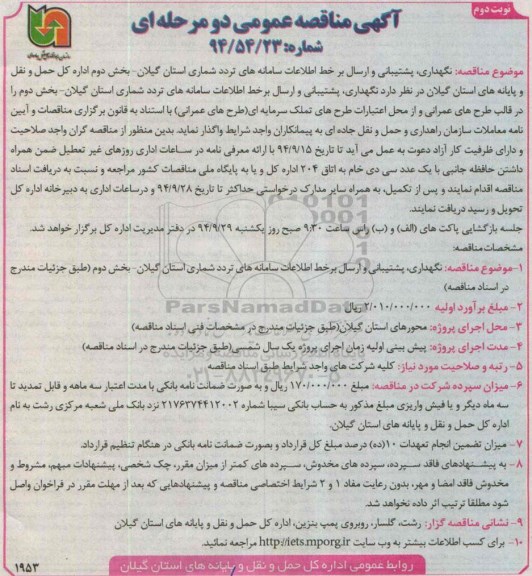 نوبت دوم
آگهی مناقصه عمومی دو مرحله ای
شماره: ۹۴/۵۴/۲۳
موضوع مناقصه: نگهداری، پشتیبانی و ارسال بر خط اطلاعات سامانه های تردد شماری استان گیلان- بخش دوم اداره کل حمل و نقل
و پایانه های استان گیلان در نظر دارد نگهداری، پشتیبانی و ارسال برخط اطلاعات سامانه های تردد شماری استان گیلان- بخش دوم را
در قالب طرح های عمرانی و از محل اعتبارات طرح های تملک سرمایه ای(طرح های عمرانی) با استناد به قانون برگزاری مناقصات و آیین
نامه معاملات سازمان راهداری و حمل و نقل جاده ای به پیمانکاران واجد شرایط واگذار نماید. بدین منظور از مناقصه گران واجد صلاحیت
و دارای ظرفیت کار آزاد دعوت به عمل می آید تا تاریخ ۹۴/۹/۱۵ با ارائه معرفی نامه در ساعات اداری روزهای غیر تعطیل ضمن همراه
داشتن حافظه جانبی با یک عدد سی دی خام به اتاق ۲۰۴ اداره کل و یا به پایگاه ملی مناقصات کشور مراجعه و نسبت به دریافت اسناد
مناقصه اقدام نمایند و پس از تکمیل، به همراه سایر مدارک درخواستی حداکثر تا تاریخ ۹۴/۹/۲۸ و درساعات اداری به دبیرخانه اداره کل
تحویل و رسید دریافت نمایند.
جلسه بازگشایی پاکت های (الف) و (ب) راس ساعت ۹:۳۰ صبح روز یکشنبه ۹۴/۹/۲۹ در دفتر مدیریت اداره کل برگزار خواهد شد.
مشخصات مناقصه:
۱-موضوع مناقصه: نگهداری، پشتیبانی و ارسال برخط اطلاعات سامانه های تردد شماری استان گیلان- بخش دوم (طبق جزئیات مندرج
در اسناد مناقصه)
۲- مبلغ برآورد اولیه ۲/۰۱۰/۰۰۰/۰۰۰ ریال
ParsNamadData
۳- محل اجرای پروژه: محورهای استان گیلان(طبق جزئیات مندرج در مشخصات فنی اسناد مناقصه)
۴- مدت اجرای پروژه: پیش بینی اولیه زمان اجرای پروژه یک سال شمسی(طبق جزئیات مندرج در اسناد مناقصه)
۵- رتبه و صلاحیت مورد نیاز: کلیه شرکت های واجد شرایط طبق اسناد مناقصه
۶- میزان سپرده شرکت در مناقصه: مبلغ ۱۷۰/۰۰۰/۰۰۰ ریال و به صورت ضمانت نامه بانکی با مدت اعتبار سه ماهه و قابل تمدید تا
سه ماه دیگر و یا فیش واریزی مبلغ مذکور به حساب بانکی سیبا شماره ۲۱۷۶۳۷۴۴۱۲۰۰۲ نزد بانک ملی شعبه مرکزی رشت به نام
اداره کل حمل و نقل و پایانه های استان گیلان.
۷- میزان تضمین انجام تعهدات ۱۰(ده) درصد مبلغ کل قرارداد و بصورت ضمانت نامه بانکی در هنگام تنظیم قرارداد.
۸- به پیشنهادهای فاقد سپرده، سپرده های مخدوش، سپرده های کمتر از میزان مقرر، چک شخصی، پیشنهادات مبهم، مشروط و
مخدوش فاقد امضا و مهر، بدون رعایت مفاد ۱ و ۲ شرایط اختصاصی مناقصه و پیشنهادهایی که بعد از مهلت مقرر در فراخوان واصل
شود مطلقا ترتیب اثر داده نخواهد شد.
۹- نشانی مناقصه گزار: رشت، گلسار، روبروی پمپ بنزین، اداره کل حمل و نقل و پایانه های استان گیلان
۱۰- برای کسب اطلاعات بیشتر به وب سایت http://iets.mporg.ir مراجعه نمائید.
روابط عمومی اداره کل حمل و نقل و پایانه های استان گیلان
۱۹۵۳